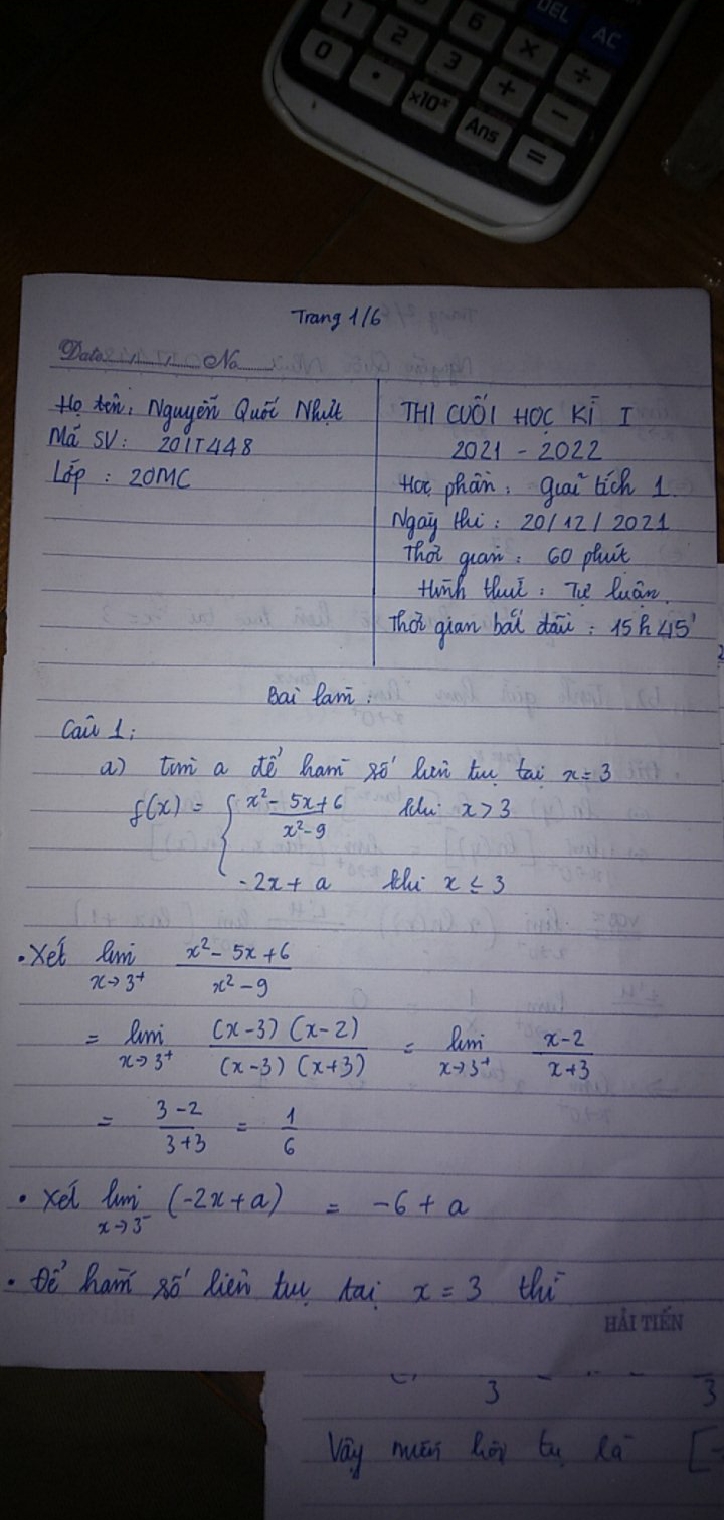 1
2
3
6
×
÷
DEL
AC
0
•
×10ˣ
Ans
+
−
=
Trang 1/6
Date No
Họ tên: Nguyễn Quốc Nhựt
Mã SV: 20IT448
Lớp : 20MC
THI CUỐI HỌC KÌ I
2021 - 2022
Học phần: Giải tích 1.
Ngày thi : 20/12/2021
Thời gian : 60 phút
Hình thức : Tự luận.
Thời gian bắt đầu : 15h45'
Bài làm :
Câu 1:
a) tìm a để hàm số liên tục tại x = 3
f(x) = { (x² - 5x + 6)/(x² - 9) khi x > 3
-2x + a khi x ≤ 3
• Xét lim x→3⁺ (x² - 5x + 6)/(x² - 9)
= lim x→3⁺ ((x-3)(x-2))/((x-3)(x+3)) = lim x→3⁺ (x-2)/(x+3)
= (3-2)/(3+3) = 1/6
• Xét lim x→3⁻ (-2x + a) = -6 + a
• Để hàm số liên tục tại x = 3 thì
HẢI TIẾN
3
3
Vậy miền hội tụ là [